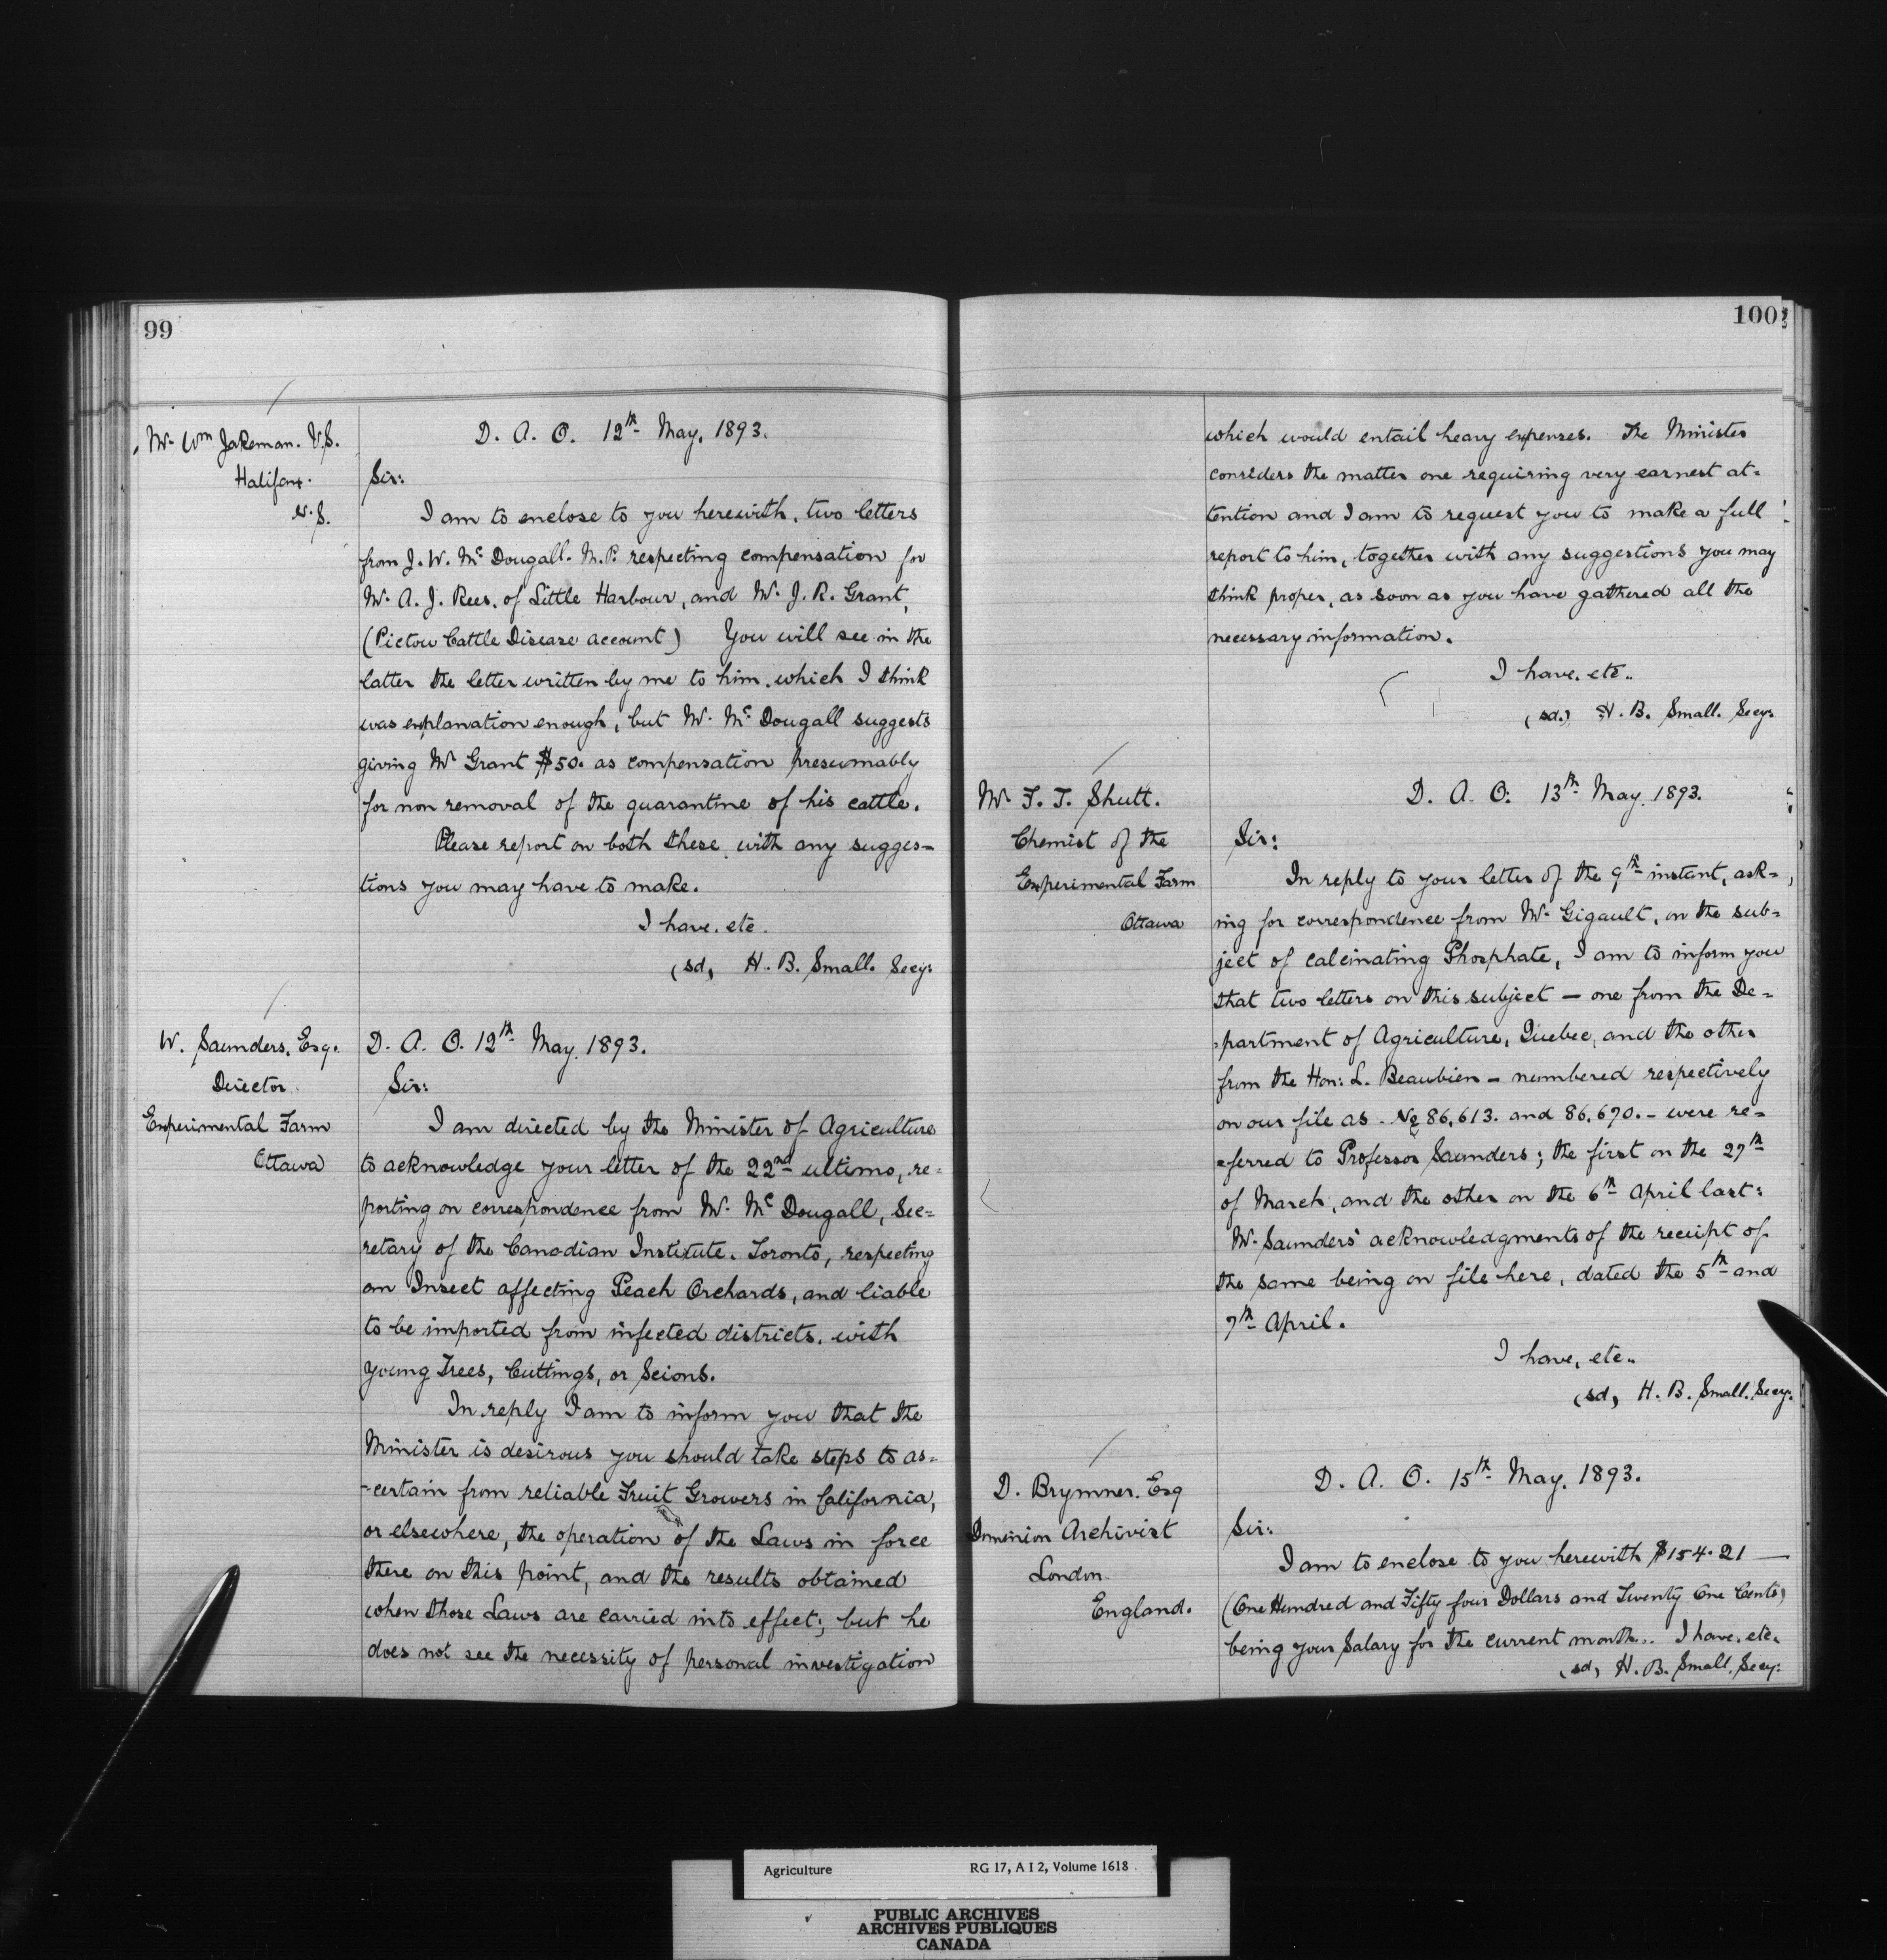 99
Mr. Wm Jakeman. V.S.
Halifax.
N.S.
D. A. O. 12th May, 1893.
Sir:
I am to enclose to you herewith, two letters
from J. W. McDougall. M.P. respecting compensation for
Mr. A. J. Rees, of Little Harbour, and Mr. J. R. Grant,
(Pictou Cattle Disease account) You will see in the
latter the letter written by me to him, which I think
was explanation enough, but Mr. McDougall suggests
giving Mr Grant $50. as compensation presumably
for non removal of the quarantine of his cattle.
Please report on both these, with any sugges=
tions you may have to make.
I have, etc.
(sd, H. B. Small. Secy.
W. Saunders, Esq.
Director
Experimental Farm
Ottawa
D. A. O. 12th May, 1893.
Sir:
I am directed by the Minister of Agriculture
to acknowledge your letter of the 22nd ultimo, re=
porting on correspondence from Mr. McDougall, Sec=
retary of the Canadian Institute, Toronto, respecting
an Insect affecting Peach Orchards, and liable
to be imported from infected districts, with
young Trees, Cuttings, or Scions.
In reply I am to inform you that the
Minister is desirous you should take steps to as=
-certain from reliable Fruit Growers in California,
or elsewhere, the operation of the Laws in force
there on this point, and the results obtained
when those Laws are carried into effect; but he
does not see the necessity of personal investigation
100
which would entail heavy expenses. The Minister
considers the matter one requiring very earnest at=
tention and I am to request you to make a full
report to him, together with any suggestions you may
think proper, as soon as you have gathered all the
necessary information.
I have, etc..
(sd.) H. B. Small. Secy.
Mr F. T. Shutt.
Chemist of the
Experimental Farm
Ottawa
D. A. O. 13th May, 1893.
Sir:
In reply to your letter of the 9th instant, ask=
ing for correspondence from Mr. Gigault, on the sub=
ject of calcinating Phosphate, I am to inform you
that two letters on this subject — one from the De=
partment of Agriculture, Quebec, and the other
from the Hon: L. Beaubien — numbered respectively
on our file as No 86,613. and 86,690. — were re=
ferred to Professor Saunders; the first on the 27th
of March, and the other on the 6th April last:
Mr. Saunders' acknowledgments of the receipt of
the same being on file here, dated the 5th and
7th April.
I have, etc..
(sd, H. B. Small. Secy.
D. Brymner. Esq
Dominion Archivist
London
England.
D. A. O. 15th May, 1893.
Sir:
I am to enclose to you herewith $154.21 —
(One Hundred and Fifty four Dollars and Twenty One Cents)
being your Salary for the current month.. I have, etc.
(sd, H. B. Small, Secy:
Agriculture RG 17, A I 2, Volume 1618
PUBLIC ARCHIVES
ARCHIVES PUBLIQUES
CANADA